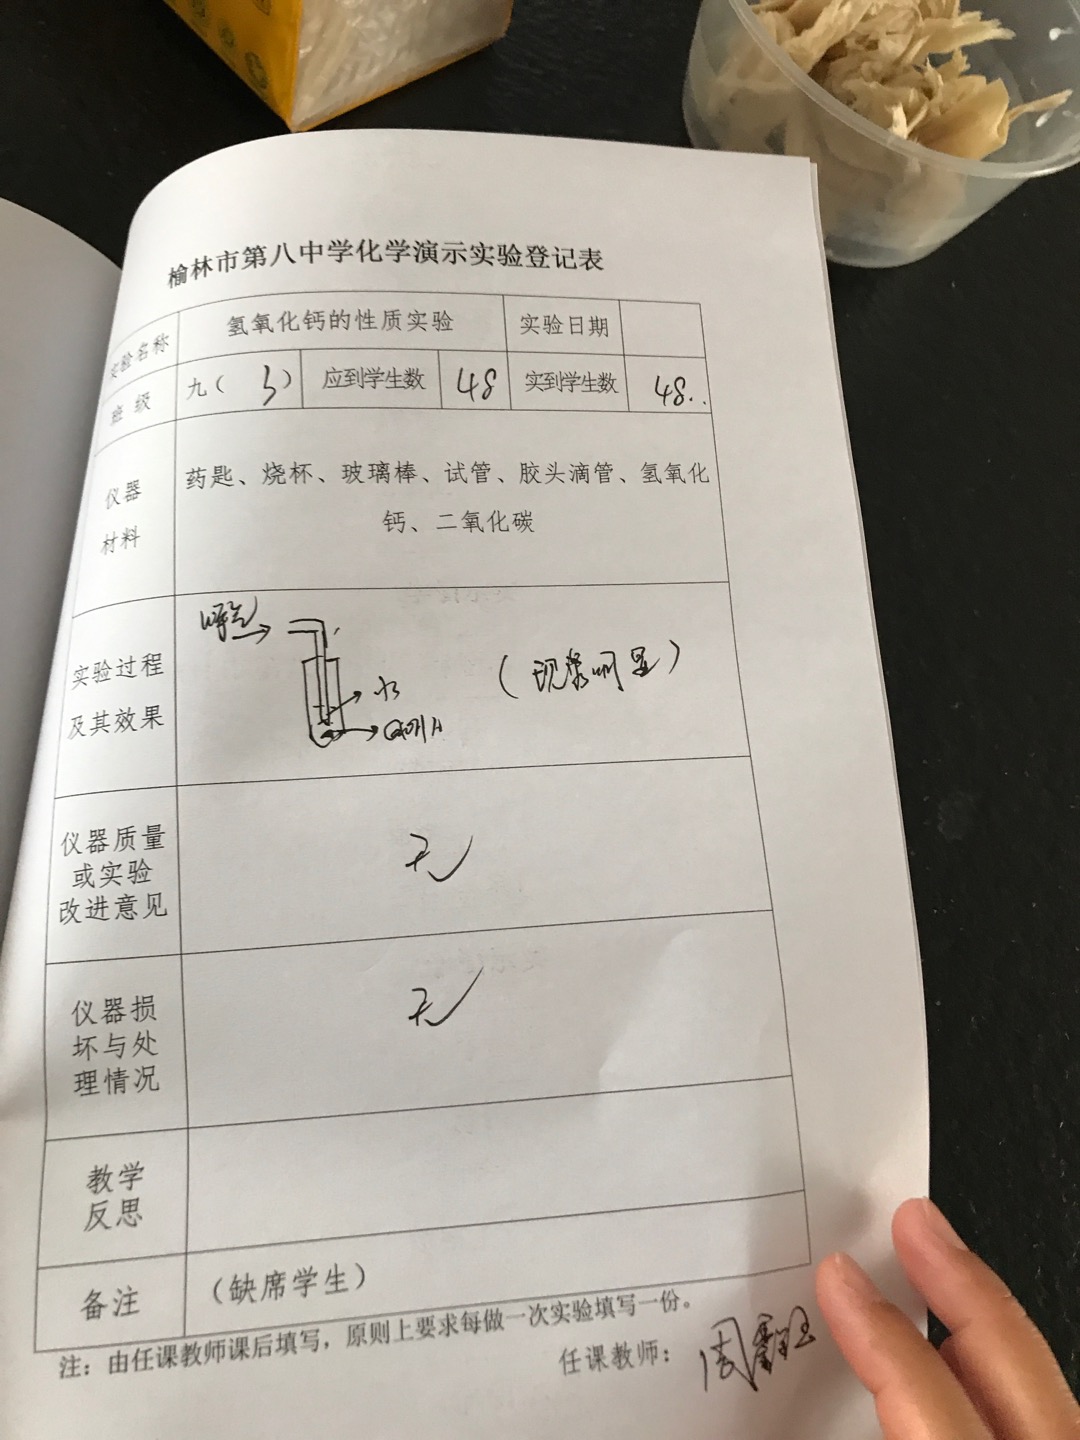 榆林市第八中学化学演示实验登记表
实验名称 氢氧化钙的性质实验 实验日期
班级 九（3） 应到学生数 48 实到学生数 48..
仪器
材料
药匙、烧杯、玻璃棒、试管、胶头滴管、氢氧化
钙、二氧化碳
实验过程
及其效果
呼气
水
（现象明显）
仪器质量
或实验
改进意见
无
仪器损
坏与处
理情况
无
教学
反思
备注 （缺席学生）
注：由任课教师课后填写，原则上要求每做一次实验填写一份。
任课教师：周